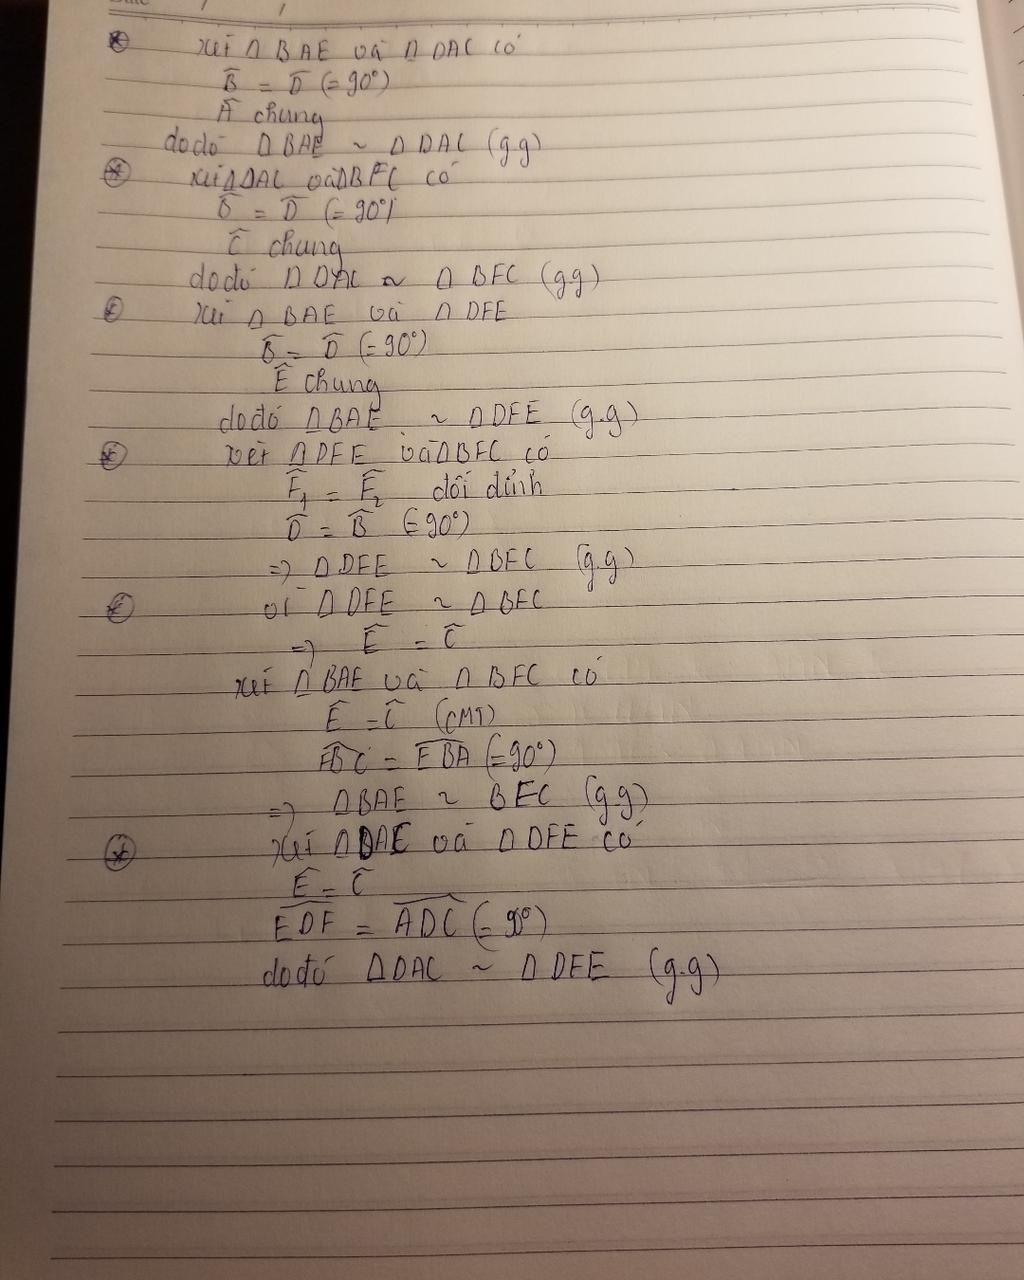 xét Δ BAE và Δ DAC có
B̂ = D̂ (= 90°)
Â chung
do dó Δ BAE ~ Δ DAC (gg)
xét Δ DAC và Δ BFC có
B̂ = D̂ (= 90°)
Ĉ chung
do đó Δ DAC ~ Δ BFC (gg)
xét Δ BAE và Δ DFE
B̂ = D̂ (= 90°)
Ê chung
do đó Δ BAE ~ Δ DFE (g.g)
xét Δ DFE và Δ BFC có
F̂₁ = F̂₂ dối dỉnh
D̂ = B̂ (= 90°)
=> Δ DFE ~ Δ BFC (g.g)
vì Δ DFE ~ Δ BFC
=> Ê = Ĉ
xét Δ BAE và Δ BFC có
Ê = Ĉ (CMT)
FBC = EBA (= 90°)
=> Δ BAE ~ BFC (g.g)
xét Δ DAC và Δ DFE có
Ê = Ĉ
EDF = ADC (= 90°)
do đó Δ DAC ~ Δ DFE (g.g)